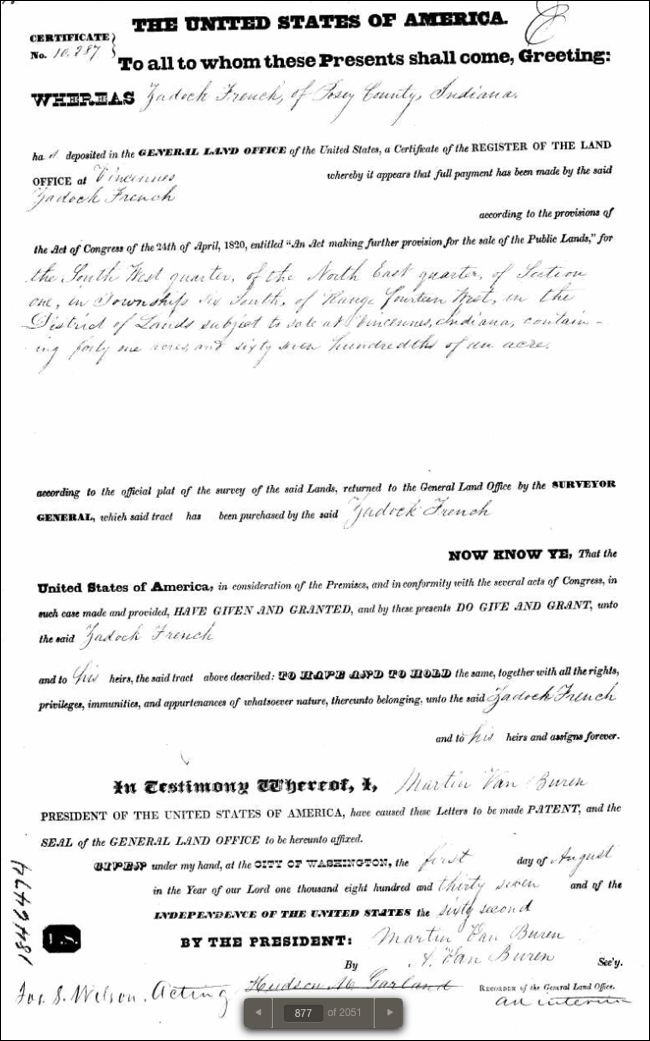 THE UNITED STATES OF AMERICA.
CERTIFICATE
No. 10.287
To all to whom these Presents shall come, Greeting:
WHEREAS Zadock French, of Posey County, Indiana,
ha s deposited in the GENERAL LAND OFFICE of the United States, a Certificate of the REGISTER OF THE LAND
OFFICE at Vincennes whereby it appears that full payment has been made by the said
Zadock French
according to the provisions of
the Act of Congress of the 24th of April, 1820, entitled "An Act making further provision for the sale of the Public Lands," for
the South West quarter, of the North East quarter, of Section
one, in Township six South, of Range fourteen West, in the
District of Lands subject to sale at Vincennes, Indiana, contain-
ing forty one acres, and sixty seven hundredths of an acre,
according to the official plat of the survey of the said Lands, returned to the General Land Office by the SURVEYOR
GENERAL, which said tract has been purchased by the said Zadock French
NOW KNOW YE, That the
United States of America, in consideration of the Premises, and in conformity with the several acts of Congress, in
such case made and provided, HAVE GIVEN AND GRANTED, and by these presents DO GIVE AND GRANT, unto
the said Zadock French
and to his heirs, the said tract above described: TO HAVE AND TO HOLD the same, together with all the rights,
privileges, immunities, and appurtenances of whatsoever nature, thereunto belonging, unto the said Zadock French
and to his heirs and assigns forever.
In Testimony Whereof, I, Martin Van Buren
PRESIDENT OF THE UNITED STATES OF AMERICA, have caused these Letters to be made PATENT, and the
SEAL of the GENERAL LAND OFFICE to be hereunto affixed.
GIVEN under my hand, at the CITY OF WASHINGTON, the first day of August
in the Year of our Lord one thousand eight hundred and thirty seven and of the
INDEPENDENCE OF THE UNITED STATES the sixty second
BY THE PRESIDENT: Martin Van Buren
By A. Van Buren Sec'y.
Jos. S. Wilson, Acting Hudson M. Garland RECORDER of the General Land Office.
ad interim
1846474
L.S.
877 of 2051